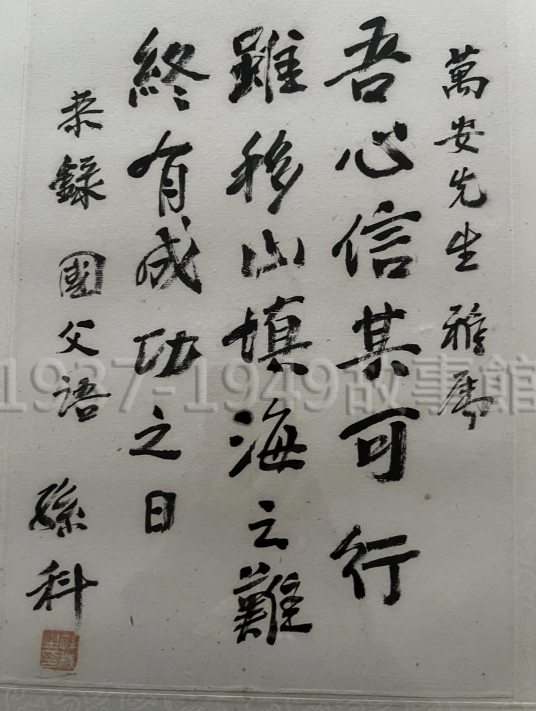 萬安先生 雅屬
吾心信其可行
雖移山填海之難
終有成功之日
恭錄 國父語
孫科
1937-1949故事館